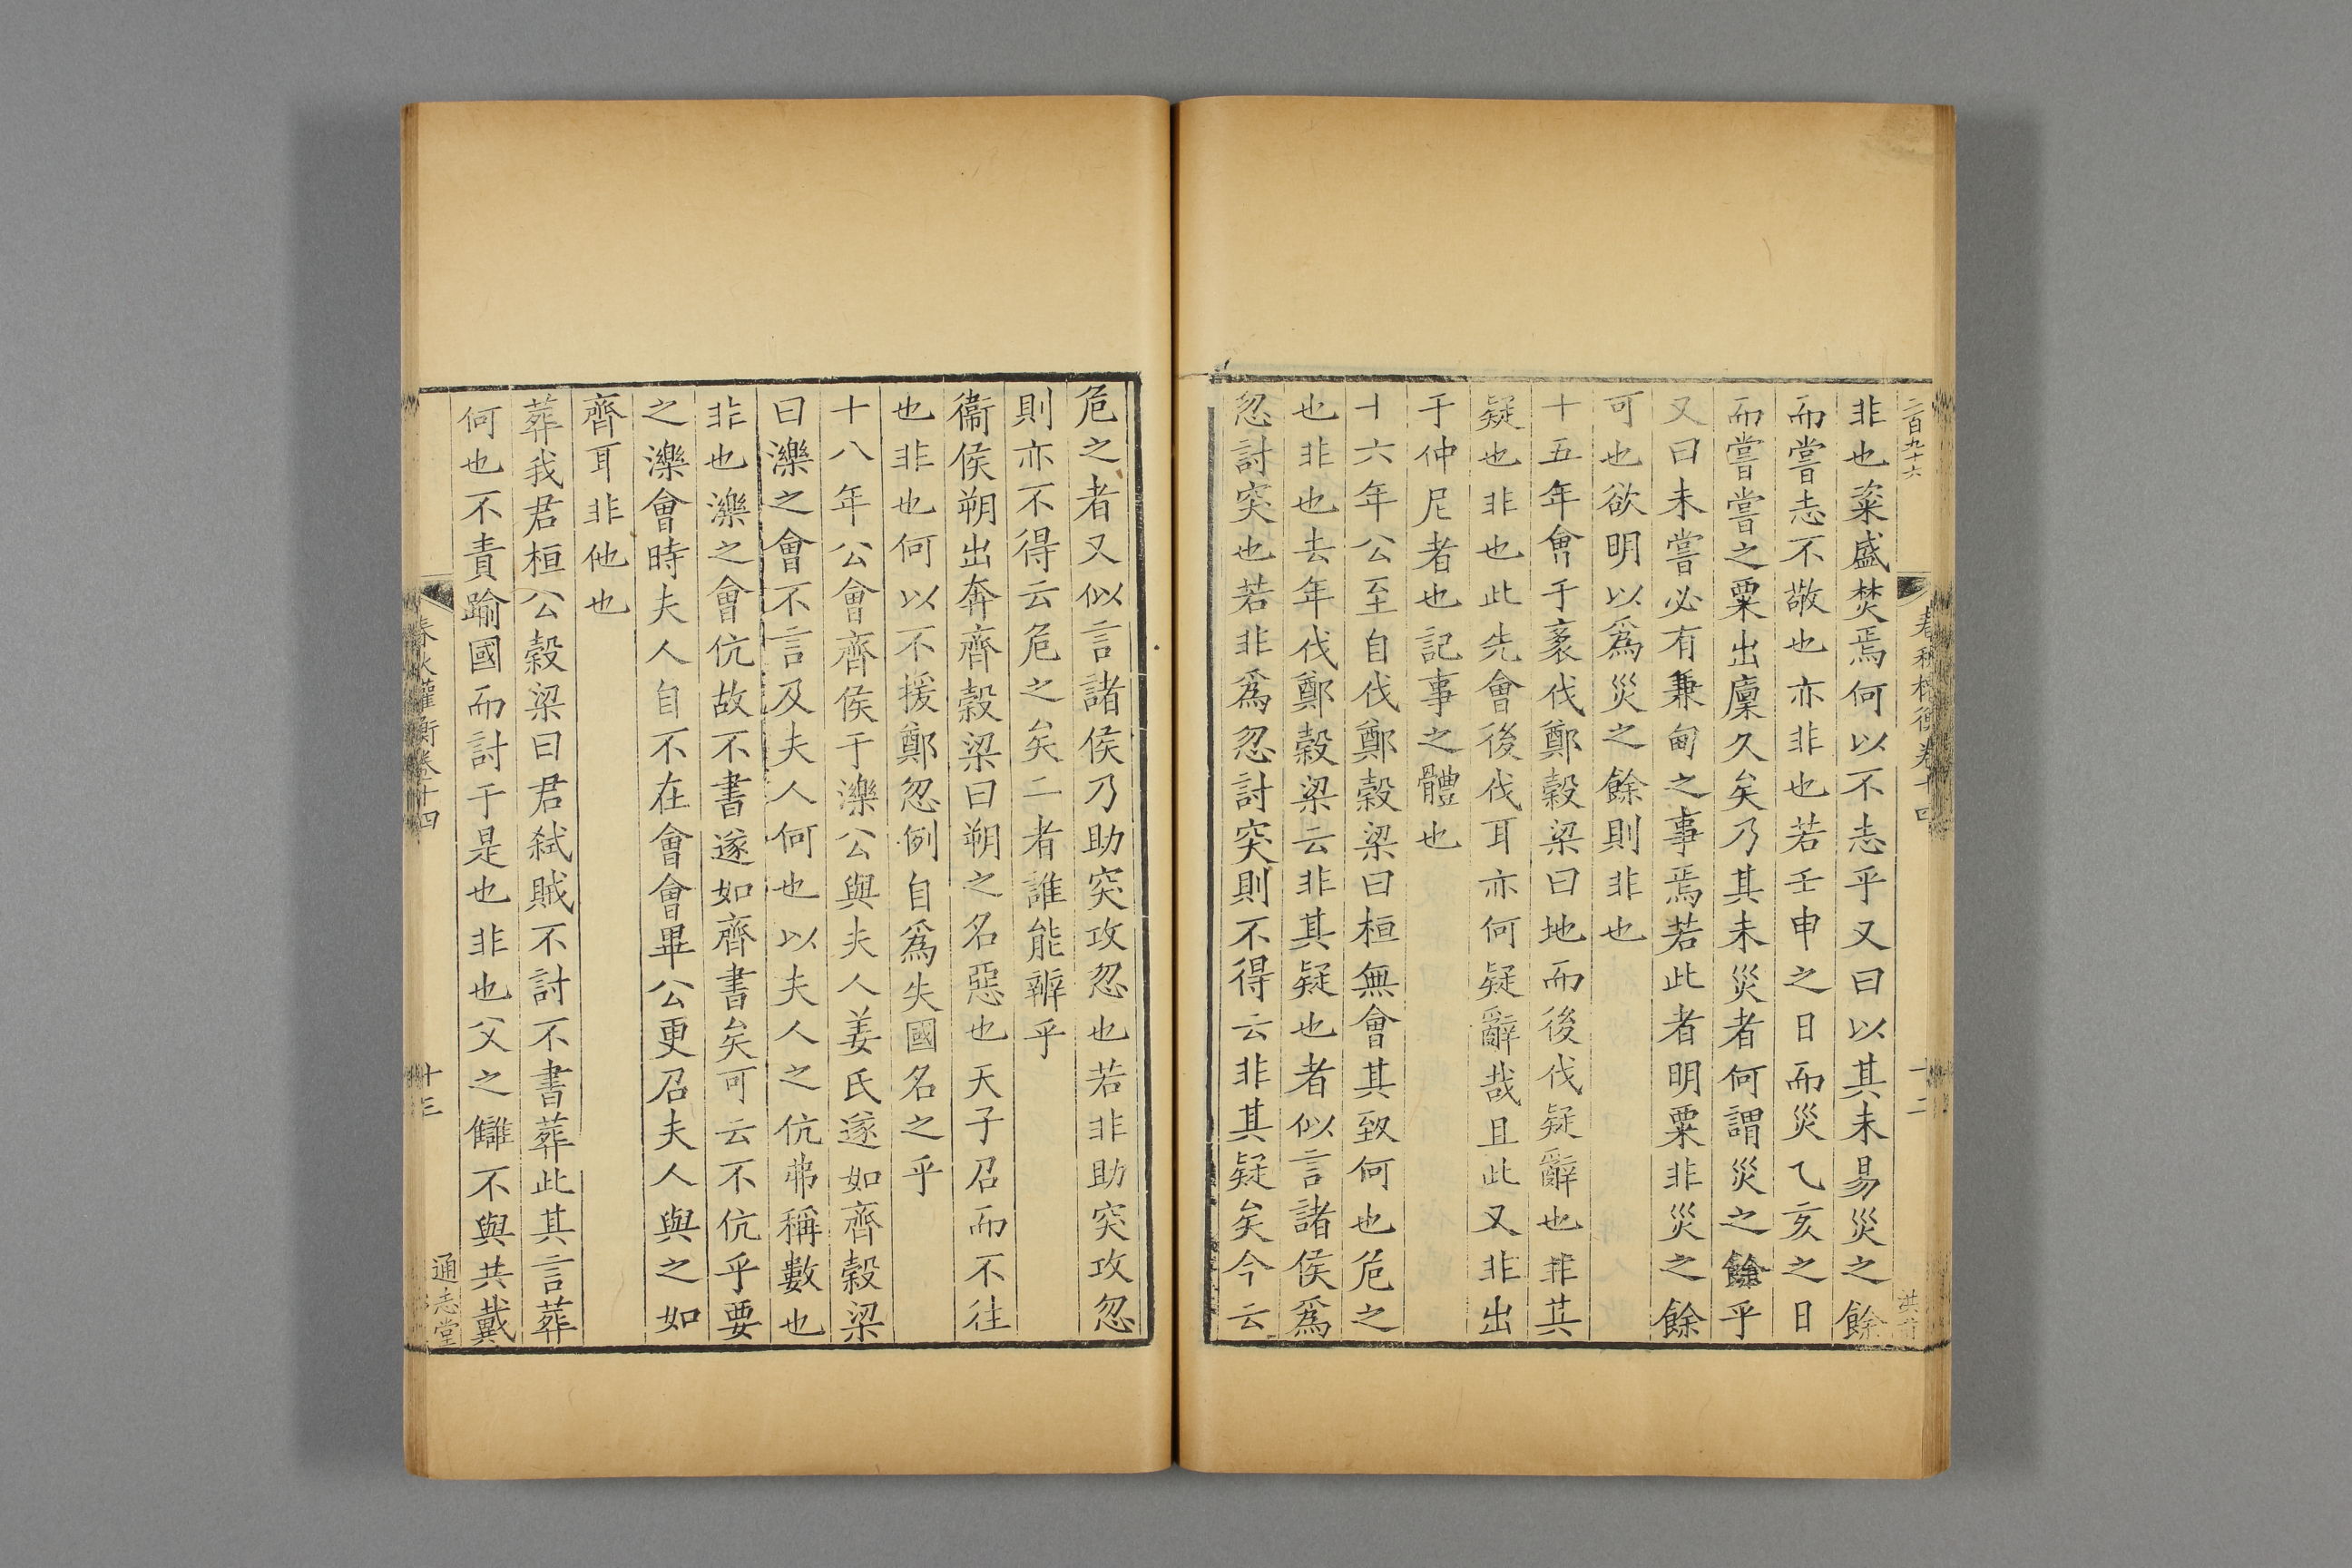 二百九十六
春秋權衡卷十四
十二
非也粢盛焚焉何以不志乎又曰以其未易災之餘
而嘗志不敬也亦非也若壬申之日而災乙亥之日
而嘗嘗之粟出廩久矣乃其未災者何謂災之餘乎
又曰未嘗必有兼甸之事焉若此者明粟非災之餘
可也欲明以爲災之餘則非也
十五年會于袲伐鄭穀梁曰地而後伐疑辭也非其
疑也非也此先會後伐耳亦何疑辭哉且此又非出
于仲尼者也記事之體也
十六年公至自伐鄭穀梁曰桓無會其致何也危之
也非也去年伐鄭穀梁云非其疑也者似言諸侯爲
忽討突也若非爲忽討突則不得云非其疑矣今云
危之者又似言諸侯乃助突攻忽也若非助突攻忽
則亦不得云危之矣二者誰能辨乎
衞侯朔出奔齊穀梁曰朔之名惡也天子召而不往
也非也何以不援鄭忽例自爲失國名之乎
十八年公會齊侯于濼公與夫人姜氏遂如齊穀梁
曰濼之會不言及夫人何也以夫人之伉弗稱數也
非也濼之會伉故不書遂如齊書矣可云不伉乎要
之濼會時夫人自不在會會畢公更召夫人與之如
齊耳非他也
葬我君桓公穀梁曰君弒賊不討不書葬此其言葬
何也不責踰國而討于是也非也父之讎不與共戴
春秋權衡卷十四
十三
通志堂